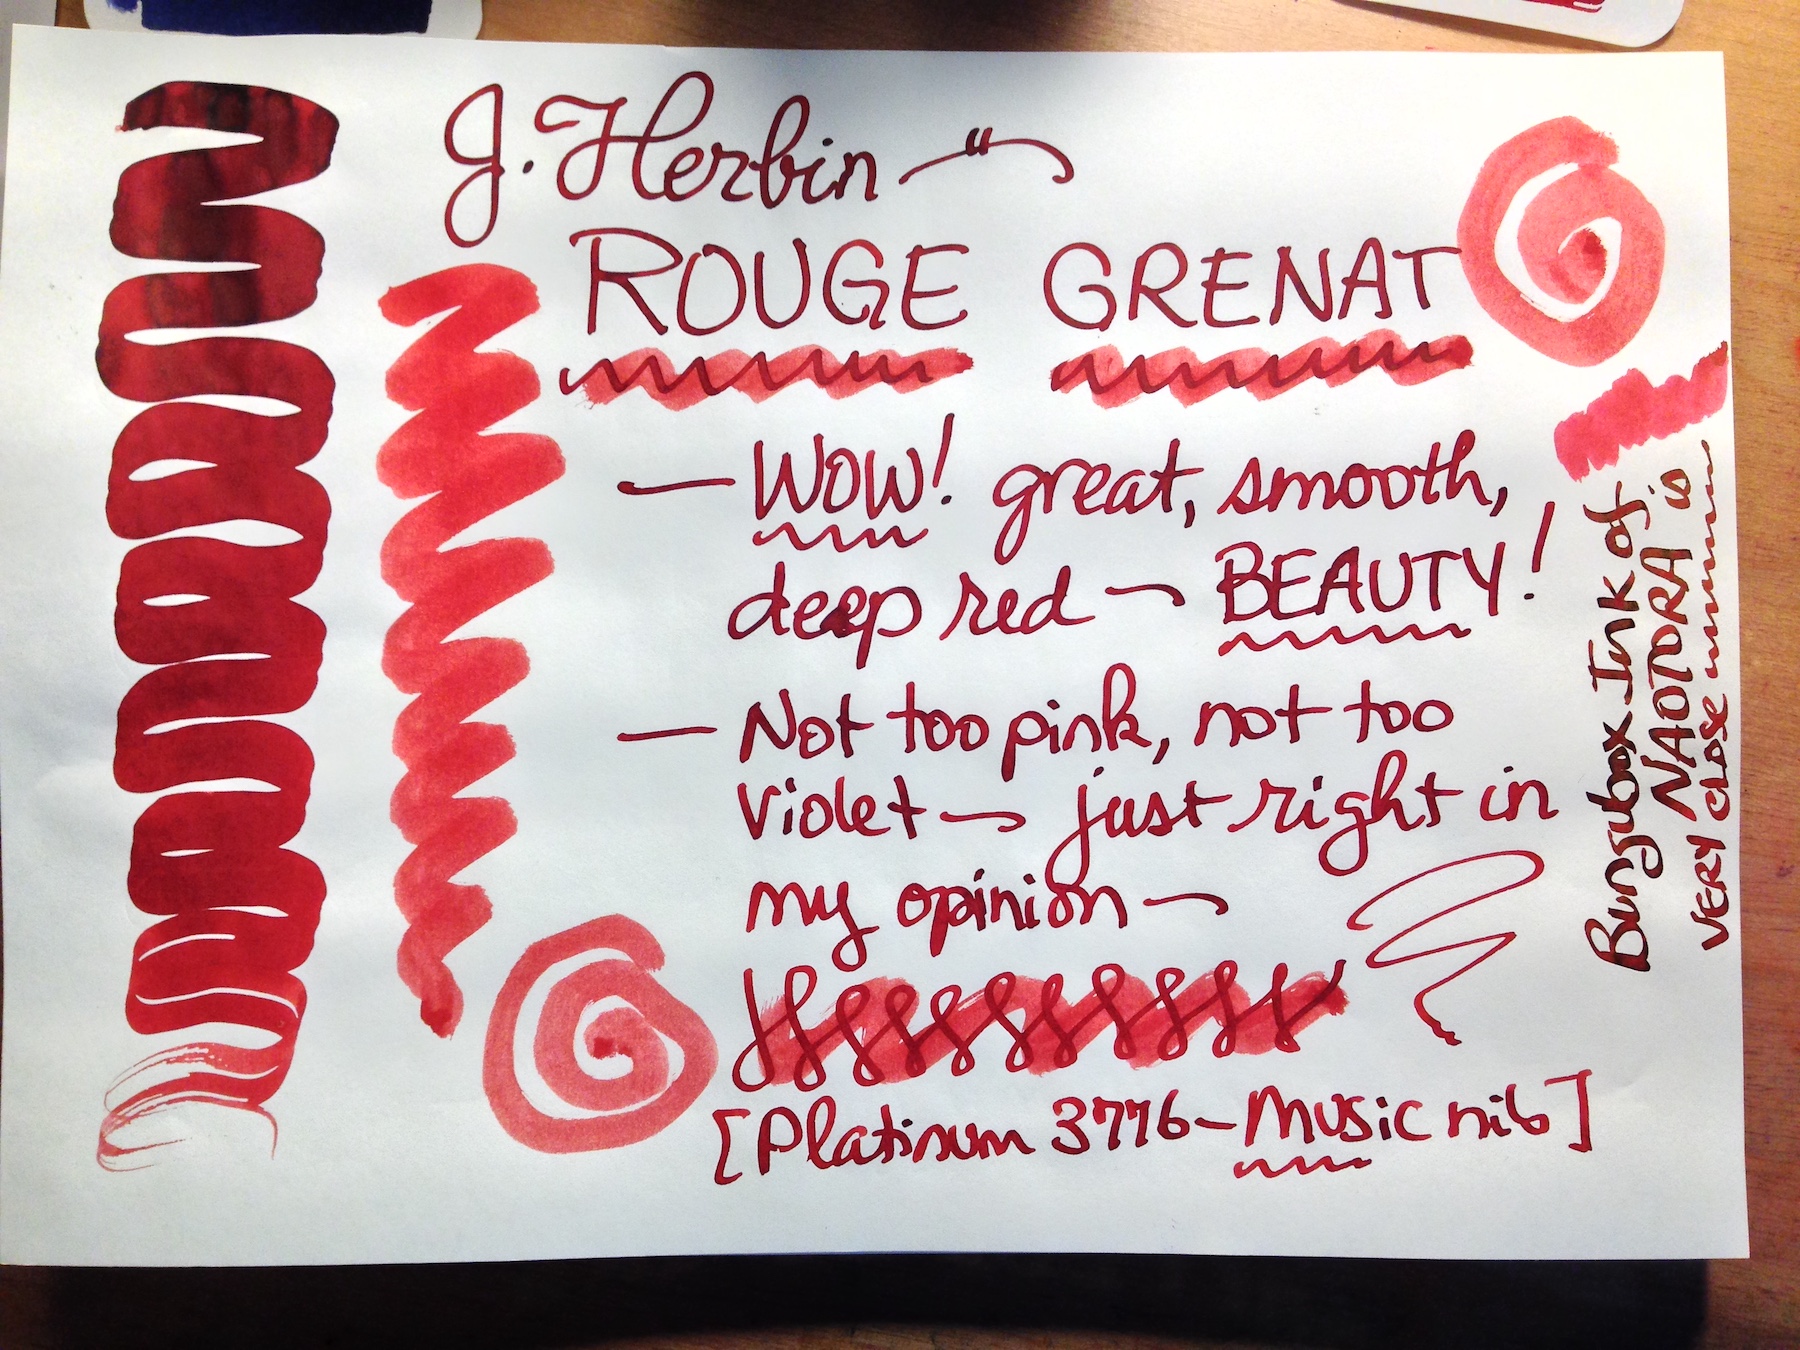 J. Herbin — "
ROUGE GRENAT
— WOW! great, smooth,
deep red — BEAUTY!
— Not too pink, not too
violet — just right in
my opinion —
[Platinum 3776 - Music nib]
Bungubox Ink of
NAOTORA is
VERY close